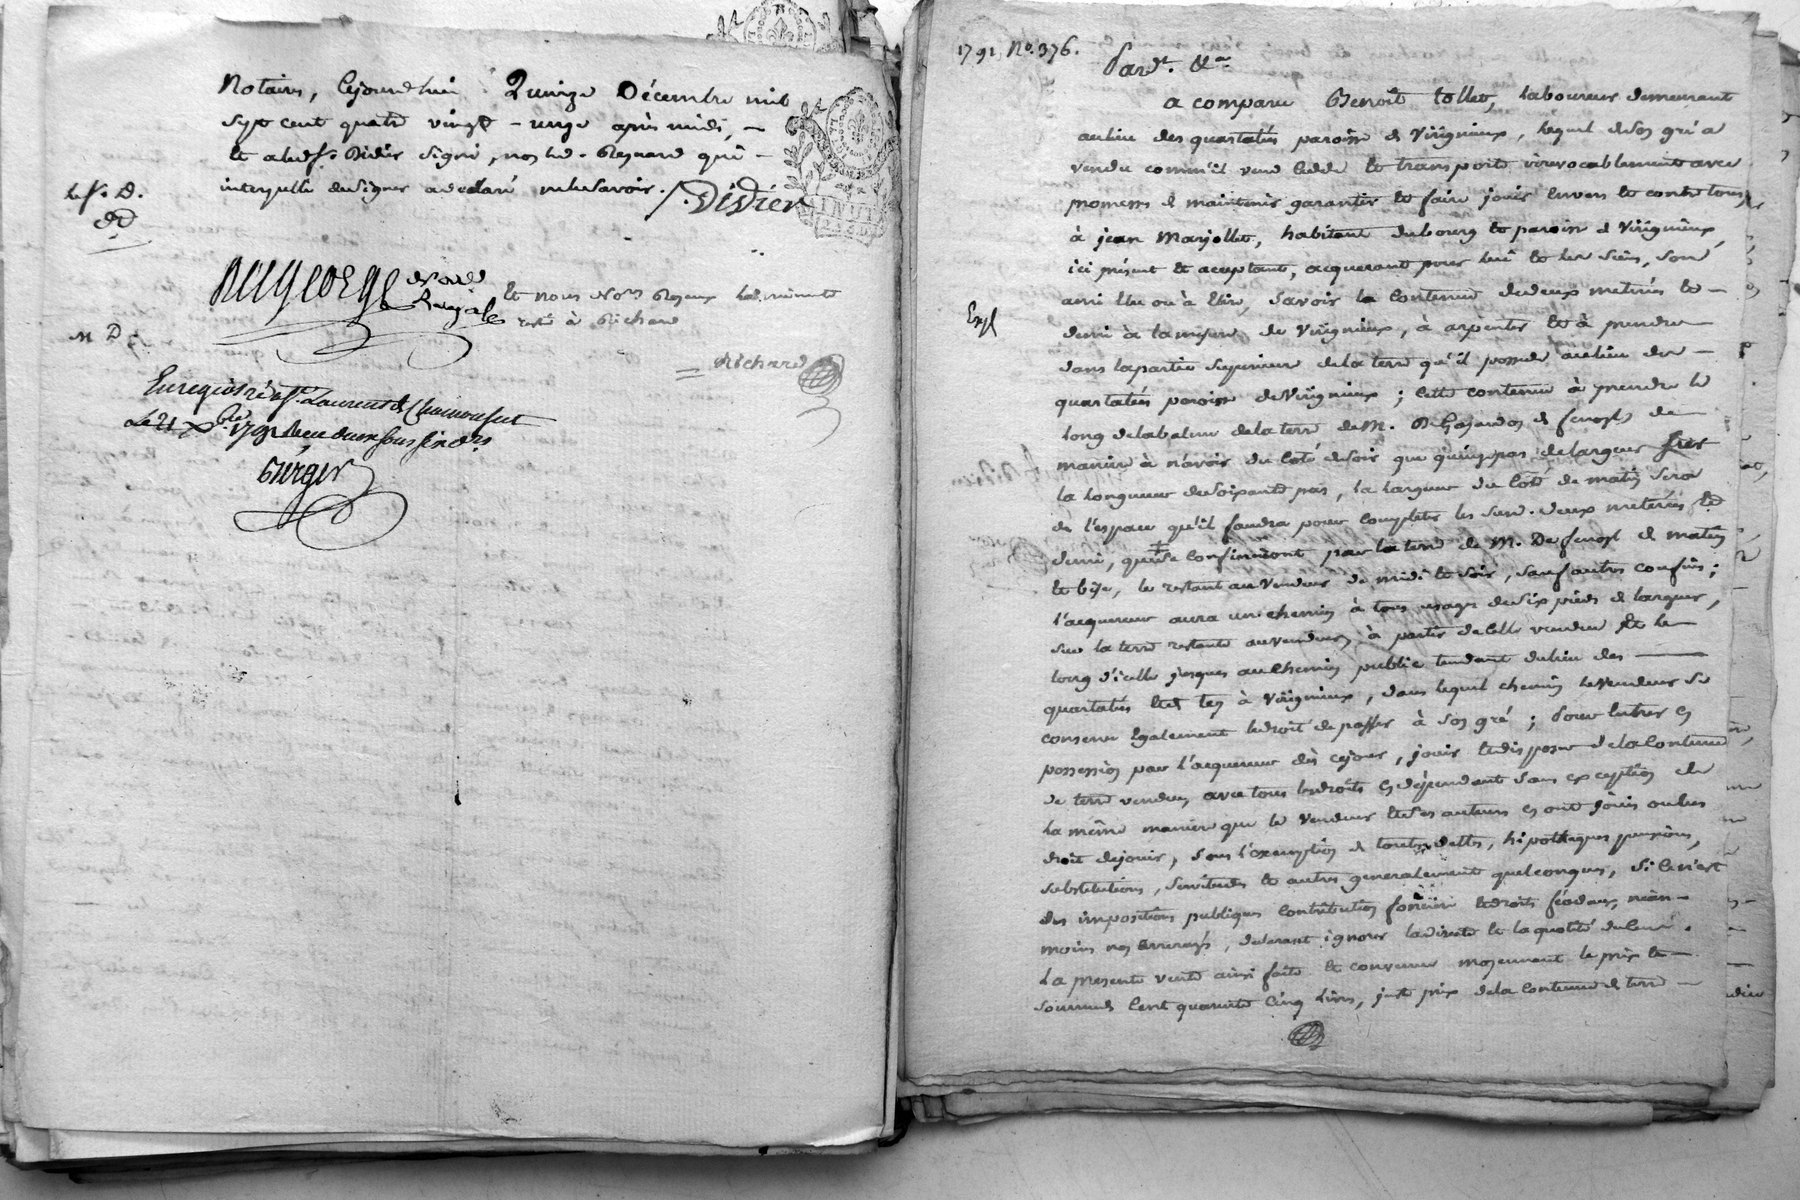 Notaires, cejourdhui Quinze Décembre mil
sept cent quatre vingt - onze après midi, -
et a led. sr. Didier signé, non led. Besnard qui -
interpellé de signer a déclaré ne le savoir. Didier
et nous Nores
la minute
resté à Richard
M D
Richard
Enregistré à St. Laurent de Chamousset
Le 21 Xbre 1791 Reçu
Berger
1791, No. 376.
Pardt. &a
a comparu Benoît tollet, laboureur demeurant
au lieu des quartatées paroisse de Virigneux, lequel de son gré a
vendu comm'il vend cedde et transporte irrevocablement avec
promesse de maintenir garantir et faire jouir envers et contre tous,
à jean Marjollet, habitant du bourg et paroisse de Virigneux,
ici présent et acceptant, acquerant pour lui et les siens, son
ami élu ou à élire, savoir la contenue de deux metrées et -
Expé
demi à la mesure de Virigneux, à arpenter et à prendre
dans la partie superieure de la terre qu'il possede au lieu des -
quartatées paroisse de Virigneux ; cette contenue à prendre le
long de la terre de M. de
maniere à n'avoir du coté de soir que quinze pas de largeur sur
la longueur de soixante pas, la largeur du coté de matin sera
de l'espace qu'il faudra pour completer les susd. deux metrées et
demi, qui se confineront par la terre de M. De fenoyl de matin
et bise, le restant au vendeur de midi et soir, sauf autres confins ;
l'acquereur aura un chemin à tous usages de six pieds de largeur,
sur la terre restante au vendeur, à partir de celle vendue et le
long d'icelle jusques au chemin public tendant du lieu des
quartatées à Virigneux, dans lequel chemin le vendeur se
conserve également le droit de passer à son gré ; pour entrer en
possession par l'acquereur dès ce jour, jouir et disposer de la contenue
de terre vendue, avec tous les droits en dépendant sans exception de
la même maniere que le vendeur et ses auteurs en ont joui ou eu
droit de jouir, sous l'exemption de toutes dettes, hipotheques pensions,
substitutions, servitudes et autres generalement quelconques, si ce n'est
des impositions publiques contribution fonciere et droits féodaux, néan-
moins non arreragés, declarant ignorer la directe et la quotité du cens.
La presente vente ainsi faite et convenue moyennant le prix et
somme de cent quarante cinq livres, juste prix de la contenue de terre